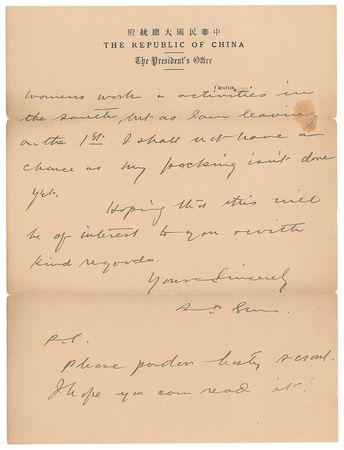 府統總大國民華中
THE REPUBLIC OF CHINA
The President's Office
Canton,
womens work & activities in
the south, but as I am leaving
on the 1st. I shall not have a
chance as my packing isn't done
yet.
Hoping that this will
be of interest to you & with
kind regards.
Yours Sincerely
Sun.
P.S.
Please pardon hasty scrawl.
I hope you can read it!